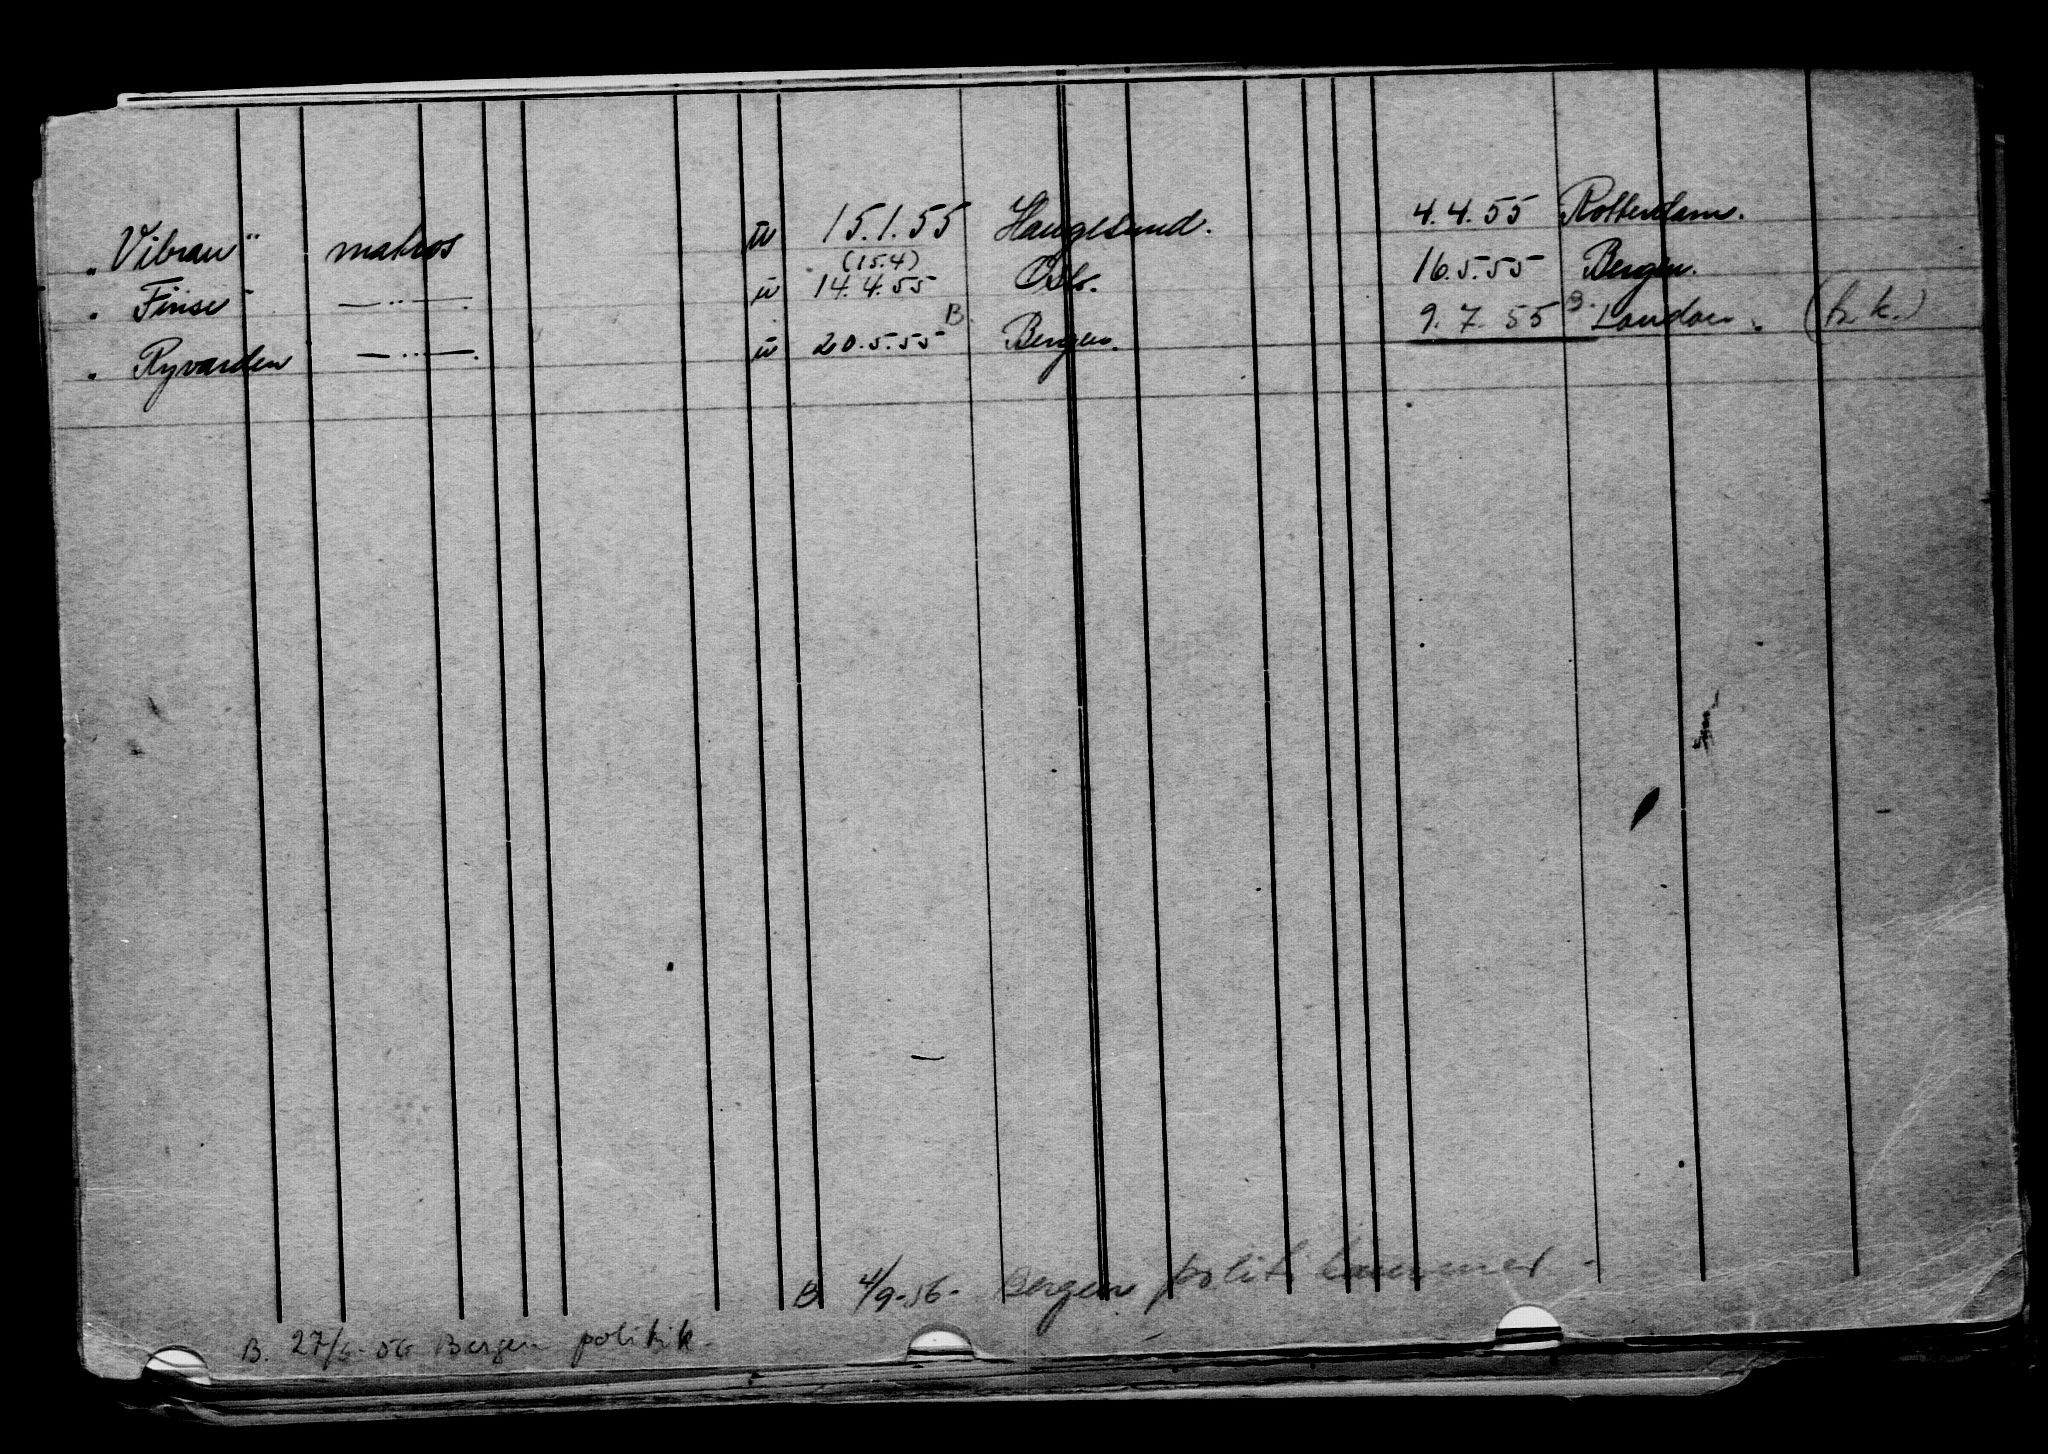 „Vibran" matros u 15.1.55 Haugesund. 4.4.55 Rotterdam.
(15.4)
" Finse - — ·· — . u 14.4.55 Oslo. 16.5.55 Bergen.
" Ryvarden — ·· — . u 20.5.55 B. Bergen. 9.7.55 B. London. (h.k.)
B 4/9-56- Bergen politikammer -
B. 27/6-56 Bergen politik.